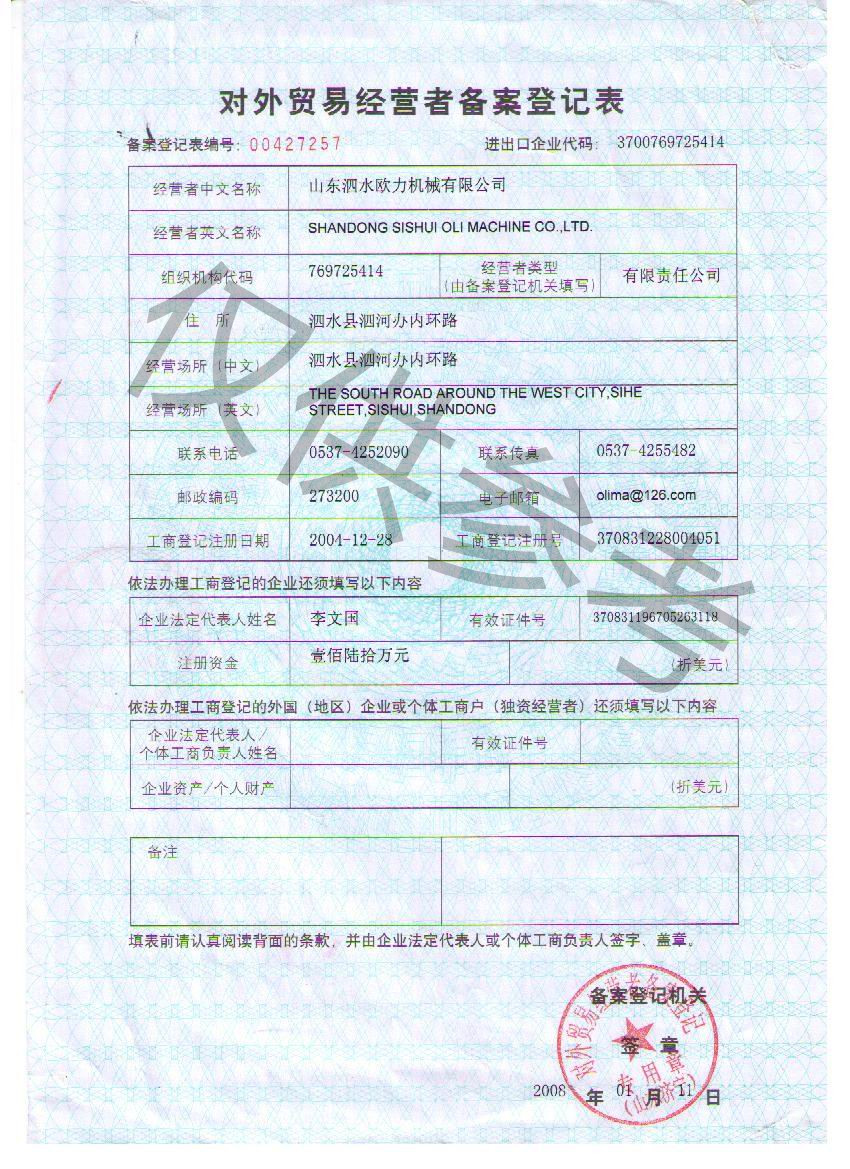 对外贸易经营者备案登记表
备案登记表编号：00427257 进出口企业代码： 3700769725414
经营者中文名称 山东泗水欧力机械有限公司
经营者英文名称 SHANDONG SISHUI OLI MACHINE CO.,LTD.
组织机构代码 769725414 经营者类型 (由备案登记机关填写) 有限责任公司
住 所 泗水县泗河办内环路
经营场所（中文） 泗水县泗河办内环路
经营场所（英文） THE SOUTH ROAD AROUND THE WEST CITY,SIHE
STREET,SISHUI,SHANDONG
联系电话 0537-4252090 联系传真 0537-4255482
邮政编码 273200 电子邮箱 olima@126.com
工商登记注册日期 2004-12-28 工商登记注册号 370831228004051
依法办理工商登记的企业还须填写以下内容
企业法定代表人姓名 李文国 有效证件号 370831196705263118
注册资金 壹佰陆拾万元 (折美元)
依法办理工商登记的外国（地区）企业或个体工商户（独资经营者）还须填写以下内容
企业法定代表人/
个体工商负责人姓名 有效证件号
企业资产/个人财产 (折美元)
备注
填表前请认真阅读背面的条款，并由企业法定代表人或个体工商负责人签字、盖章。
备案登记机关
签 章
2008 年 01 月 11 日
对外贸易经营者备案登记
专用章
(山东济宁)
仅供参考